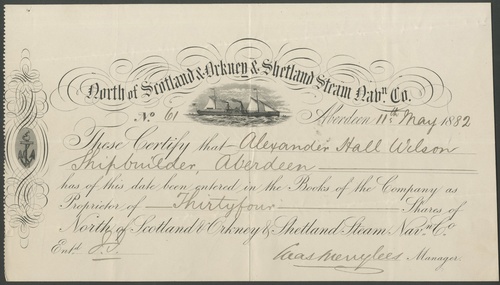 North of Scotland & Orkney & Shetland Steam Navn. Co.
No. 61 Aberdeen 11th May 1882
These Certify that Alexander Hall Wilson
Shipbuilder, Aberdeen
has of this date been entered in the Books of the Company as
Proprietor of Thirtyfour Shares of
North of Scotland & Orkney & Shetland Steam Navn. Co.
Entd.
Manager.